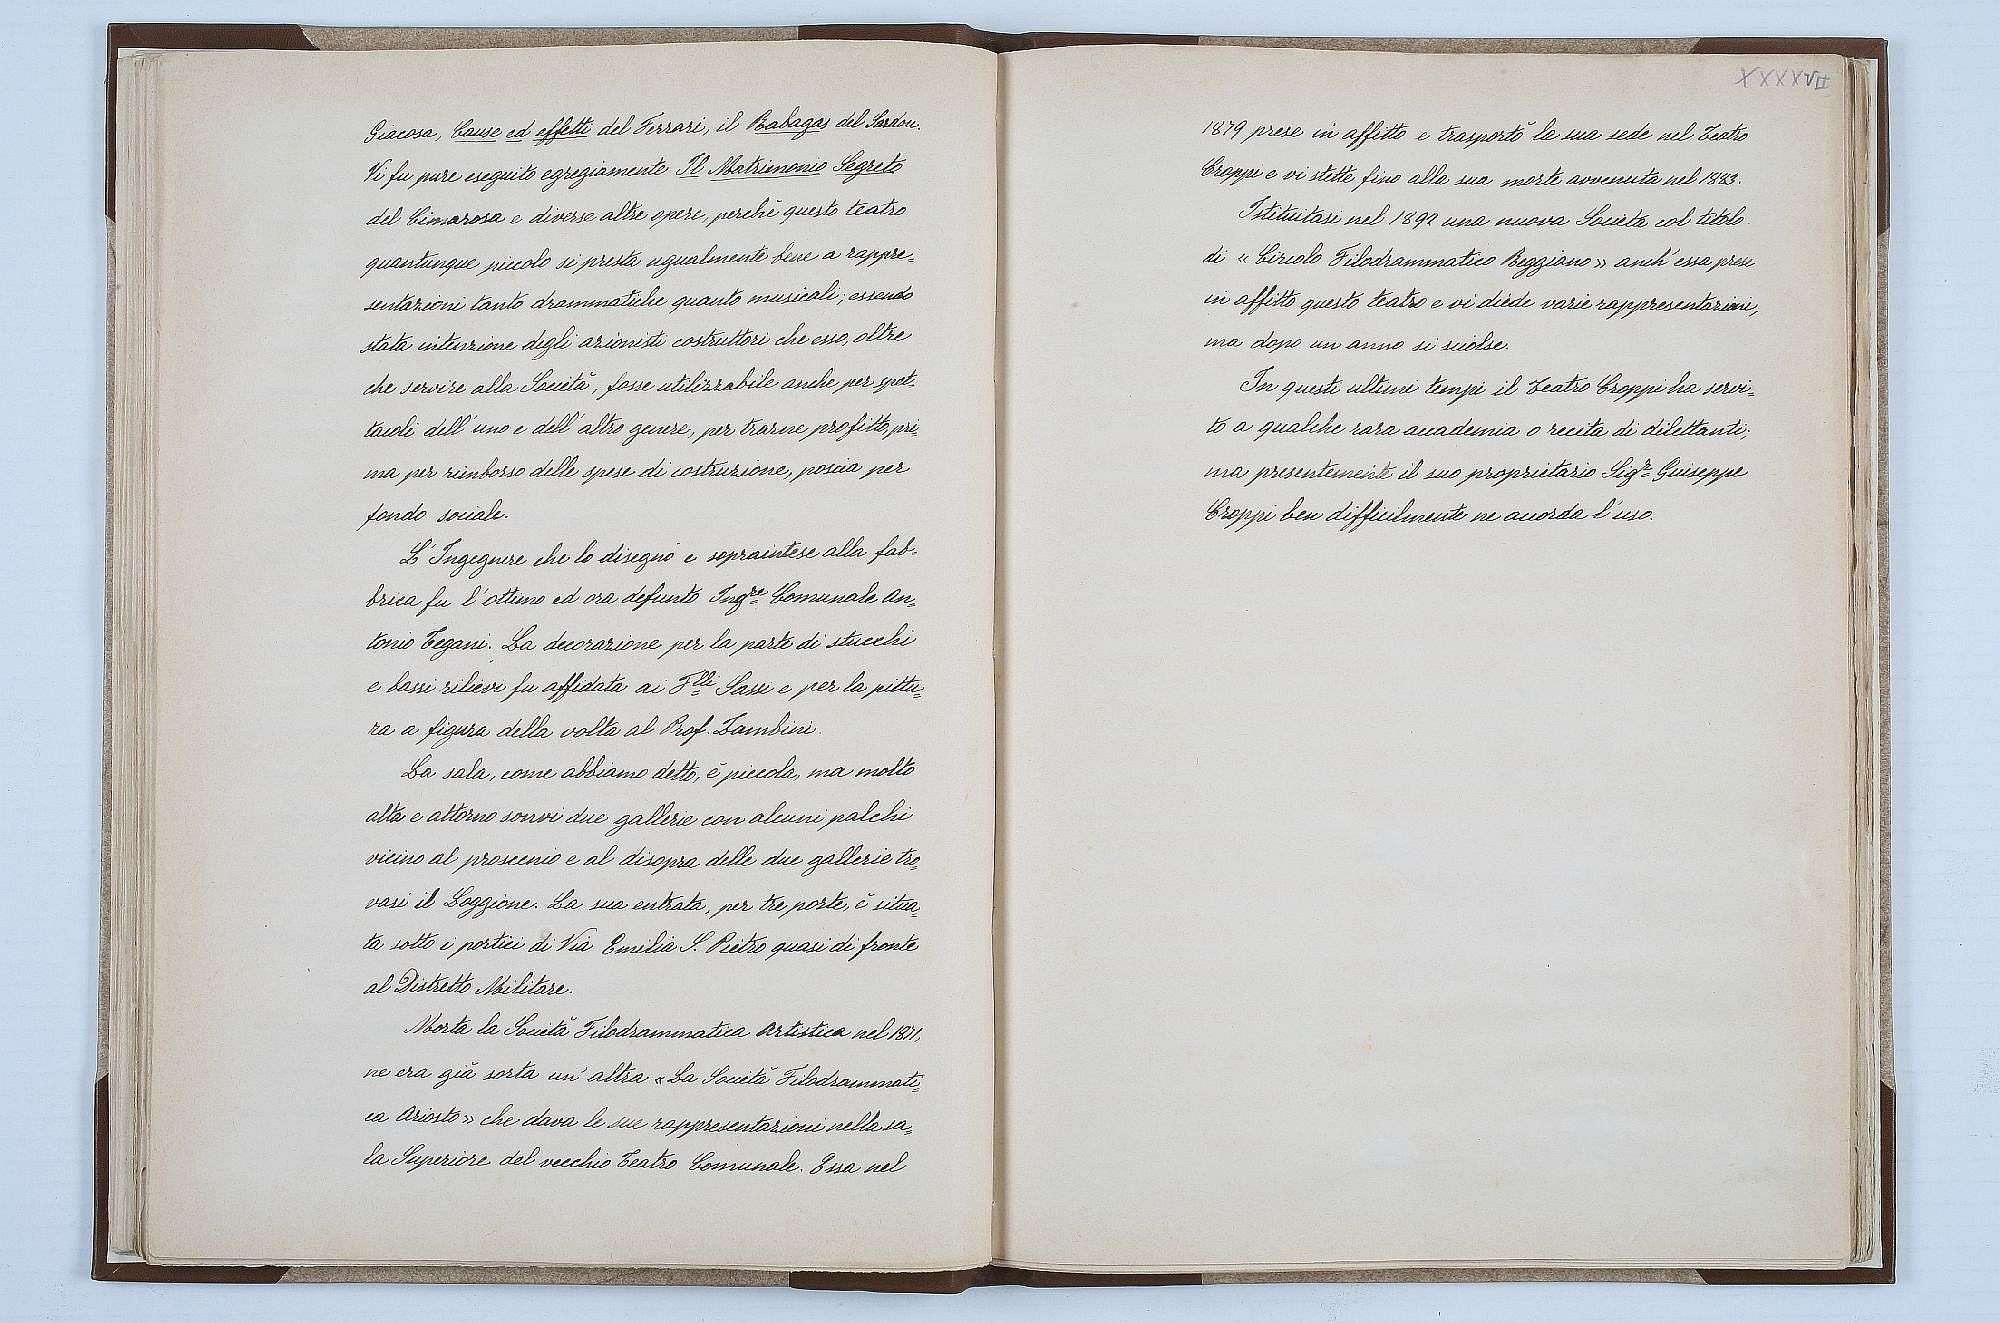 Giacosa, Cause ed effetti del Ferrari, il Rabagas del Sardou.
Vi fu pure eseguito egregiamente Il Matrimonio Segreto
del Cimarosa e diverse altre opere, perchè questo teatro
quantunque piccolo si presta ugualmente bene a rappre=
sentazioni tanto drammatiche quanto musicali; essendo
stata intenzione degli azionisti costruttori che esso, oltre
che servire alla Società, fosse utilizzabile anche per spet=
tacoli dell'uno e dell'altro genere, per trarne profitto, pri=
ma per rimborso delle spese di costruzione, poscia per
fondo sociale.
L'Ingegnere che lo disegnò e sopraintese alla fab=
brica fu l'ottimo ed ora defunto Ingre Comunale An=
tonio Tegani. La decorazione per la parte di stucchi
e bassi rilievi fu affidata ai Flli Sassi e per la pittu=
ra a figura della volta al Prof. Zambini.
La sala, come abbiamo detto, è piccola, ma molto
alta e attorno sonvi due gallerie con alcuni palchi
vicino al proscenio e al disopra delle due gallerie tro=
vasi il Loggione. La sua entrata, per tre porte, è situa=
ta sotto i portici di Via Emilia S. Pietro quasi di fronte
al Distretto Militare.
Morta la Società Filodrammatica Artistica nel 1871,
ne era già sorta un'altra «La Società Filodrammati=
ca Ariosto» che dava le sue rappresentazioni nella sa=
la Superiore del vecchio Teatro Comunale. Essa nel
XXXXVII
1879 prese in affitto e trasportò la sua sede nel Teatro
Croppi e vi stette fino alla sua morte avvenuta nel 1883.
Istituitasi nel 1892 una nuova Società col titolo
di «Circolo Filodrammatico Reggiano» anch'essa prese
in affitto questo teatro e vi diede varie rappresentazioni,
ma dopo un anno si sciolse.
In questi ultimi tempi il Teatro Croppi ha servi=
to a qualche rara accademia o recita di dilettanti;
ma presentemente il suo proprietario Sigr Guiseppe
Croppi ben difficilmente ne accorda l'uso.